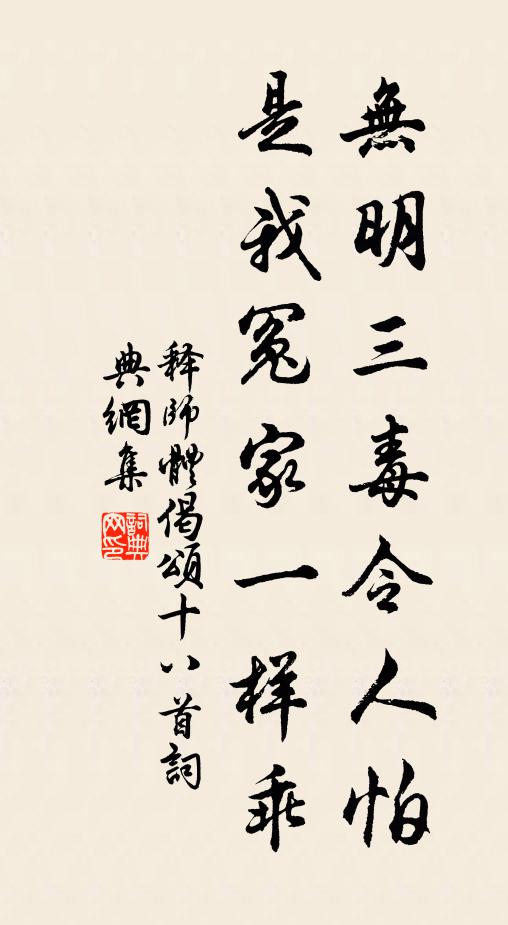 無明三毒令人怕
是我冤家一样乖
释師體偈頌十八首詞
典網集
詞典
网印